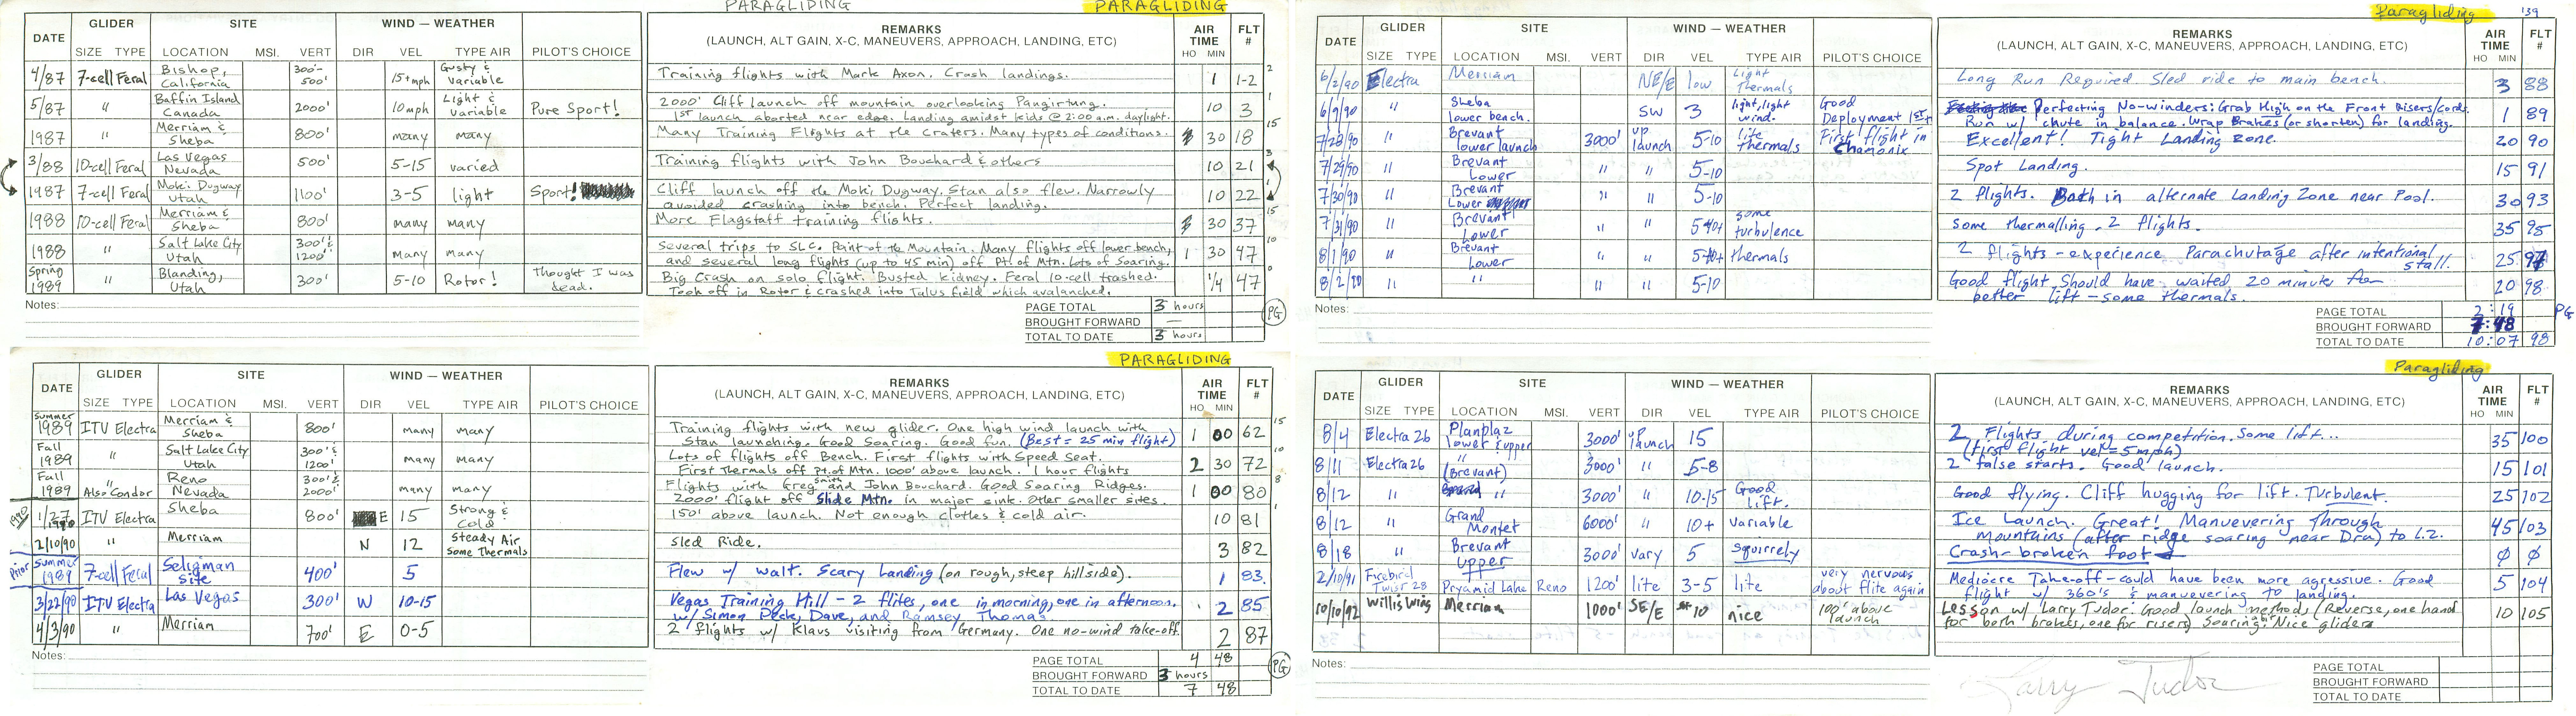 PARAGLIDING PARAGLIDING
DATE GLIDER SITE WIND — WEATHER REMARKS AIR TIME FLT #
SIZE TYPE LOCATION MSI. VERT DIR VEL TYPE AIR PILOT'S CHOICE (LAUNCH, ALT GAIN, X-C, MANEUVERS, APPROACH, LANDING, ETC) HO MIN
4/87 7-cell Feral Bishop, California 300'- 500' 15+mph Gusty & variable Training flights with Mark Axon. Crash landings. 1 1-2 2
5/87 " Baffin Island Canada 2000' 10 mph Light & variable Pure Sport! 2000' Cliff launch off mountain overlooking Pangirtung. 10 3 1
1ST launch aborted near edge. Landing amidst kids @ 2:00 a.m. daylight.
1987 " Merriam & Sheba 800' many many Many Training Flights at the craters. Many types of conditions. 30 18 15
3/88 10-cell Feral Las Vegas Nevada 500' 5-15 varied Training flights with John Bouchard & others 10 21 3
1987 7-cell Feral Moki Dugway Utah 1100' 3-5 light Sport! Cliff launch off the Moki Dugway. Stan also flew. Narrowly 10 22 1
avoided crashing into bench. Perfect landing.
1988 10-cell Feral Merriam & Sheba 800' many many More Flagstaff training flights. 30 37 15
1988 " Salt Lake City Utah 300' & 1200' many many Several trips to SLC. Point of the Mountain. Many flights off lower bench, 1 30 47 10
and several long flights (up to 45 min) off Pt. of Mtn. Lots of Soaring.
Spring 1989 " Blanding, Utah 300' 5-10 Rotor! thought I was dead. Big Crash on solo flight. Busted kidney. Feral 10-cell trashed. 1/4 47 0
Took off in Rotor & crashed into Talus field which avalanched.
Notes:
PAGE TOTAL 3 hours
BROUGHT FORWARD —
TOTAL TO DATE 3 hours
PG
PARAGLIDING
DATE GLIDER SITE WIND — WEATHER REMARKS AIR TIME FLT #
SIZE TYPE LOCATION MSI. VERT DIR VEL TYPE AIR PILOT'S CHOICE (LAUNCH, ALT GAIN, X-C, MANEUVERS, APPROACH, LANDING, ETC) HO MIN
Summer 1989 ITV Electra Merriam & Sheba 800' many many Training flights with new glider. One high wind launch with 1 00 62 15
Stan launching. Good Soaring. Good fun. (Best = 25 min flight)
Fall 1989 " Salt Lake City Utah 300' & 1200' many many Lots of flights off Bench. First flights with Speed Seat. 2 30 72 10
First Thermals off Pt. of Mtn. 1000' above launch. 1 hour flights
Fall 1989 " Also Condor Reno Nevada 300' & 2000' many many Flights with Greg Smith and John Bouchard. Good Soaring Ridges. 1 00 80 8
2000' flight off Slide Mtn. in major sink. Other smaller sites.
1990 1/27 1990 ITV Electra Sheba 800' E 15 Strong & Cold 150' above launch. Not enough clothes & cold air. 10 81 1
2/10/90 " Merriam N 12 Steady Air Some Thermals Sled Ride. 3 82
Prior Summer 1989 7-cell Feral Seligman site 400' 5 Flew w/ Walt. Scary Landing (on rough, steep hillside). 1 83.
3/22/90 ITV Electra Las Vegas 300' W 10-15 Vegas Training Hill - 2 flites, one in morning, one in afternoon. 2 85
w/ Simon Peck, Dave, and Ramsey Thomas
4/3/90 " Merriam 700' E 0-5 2 flights w/ Klaus visiting from Germany. One no-wind take-off. 2 87
Notes:
PAGE TOTAL 4 48
BROUGHT FORWARD 3 hours
TOTAL TO DATE 7 48
PG
Paragliding '39
DATE GLIDER SITE WIND — WEATHER REMARKS AIR TIME FLT #
SIZE TYPE LOCATION MSI. VERT DIR VEL TYPE AIR PILOT'S CHOICE (LAUNCH, ALT GAIN, X-C, MANEUVERS, APPROACH, LANDING, ETC) HO MIN
6/2/90 Electra Merriam NE/E low Light Thermals Long Run Required. Sled ride to main bench. 3 88
6/9/90 " Sheba lower bench. SW 3 light, light wind. Good Deployment 1st Perfecting No-winders: Grab High on the Front Risers/cords. 1 89
Run w/ chute in balance. Wrap Brakes (or shorten) for landing.
7/28/90 " Brevant lower launch 3000' up launch 5-10 lite thermals First flight in Chamonix Excellent! Tight Landing Zone. 20 90
7/29/90 " Brevant Lower " " 5-10 Spot Landing. 15 91
7/30/90 " Brevant Lower " " 5-10 2 flights. Both in alternate Landing Zone near Pool. 30 93
7/31/90 " Brevant Lower " " 5-10+ some turbulence some thermalling. 2 flights. 35 95
8/1/90 " Brevant Lower " " 5-10+ thermals 2 flights - experience Parachutage after intentional stall. 25 97
8/2/90 " " " " 5-10 Good flight. Should have waited 20 minutes for 20 98
better lift - some thermals.
Notes:
PAGE TOTAL 2:19
BROUGHT FORWARD 7:48
TOTAL TO DATE 10:07 98
PG
Paragliding
DATE GLIDER SITE WIND — WEATHER REMARKS AIR TIME FLT #
SIZE TYPE LOCATION MSI. VERT DIR VEL TYPE AIR PILOT'S CHOICE (LAUNCH, ALT GAIN, X-C, MANEUVERS, APPROACH, LANDING, ETC) HO MIN
8/4 Electra 26 Planplaz lower & upper 3000' up launch 15 2 Flights during competition. Some lift... 35 100
(first flight vel = 5mph)
8/11 Electra 26 " (Brevant) 3000' " 5-8 2 false starts. Good launch. 15 101
8/12 " " 3000' " 10-15 Good lift. Good flying. Cliff hugging for lift. Turbulent. 25 102
8/12 " Grand Montet 6000' " 10+ variable Ice Launch. Great! Manuevering through 45 103
mountains (after ridge soaring near Dru) to L.Z.
8/18 " Brevant upper 3000' vary 5 squirrely Crash - broken foot ∅ ∅
2/10/91 Firebird Twist 28 Pyramid Lake Reno 1200' lite 3-5 lite very nervous about flite again Mediocre Take-off - could have been more agressive. Good 5 104
flight w/ 360's & manuvering to landing.
10/10/92 Willis Wing Merriam 1000' SE/E 10 nice 100' above launch Lesson w/ Larry Tudor. Good launch methods (Reverse, one hand 10 105
for both brakes, one for risers) Soaring. Nice glider
Notes:
PAGE TOTAL
BROUGHT FORWARD
TOTAL TO DATE
Larry Tudor